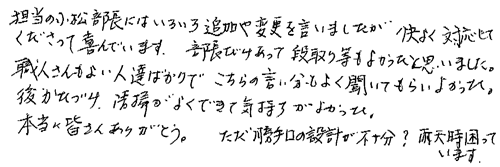 担当の小松部長にはいろいろ追加や変更を言いましたが 快よく対応して
くださって喜んでいます。 部長だけあって段取り等もよかったと思いました。
職人さんもよい人達ばかりで こちらの言い分もよく聞いてもらいよかった。
後かたづけ、清掃がよくできて気持ちがよかった。
本当に皆さんありがとう。 ただ勝手口の設計が不十分？ 雨天時困って
います。